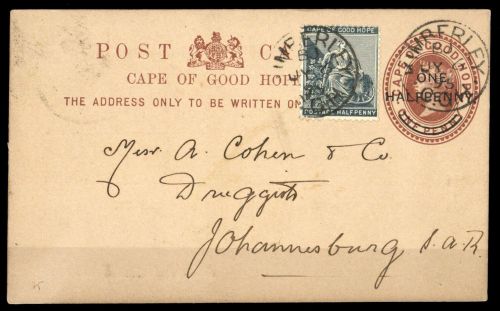 POST C
CAPE OF GOOD HOPE
THE ADDRESS ONLY TO BE WRITTEN ON
CAPE OF GOOD HOPE
POSTAGE HALFPENNY
KIMBERLEY
KIMBERLEY
CAPE OF GOOD HOPE
ONE
HALFPENNY
ONE PENNY
Messr. A. Cohen & Co.
Druggists
Johannesburg S.A.R.